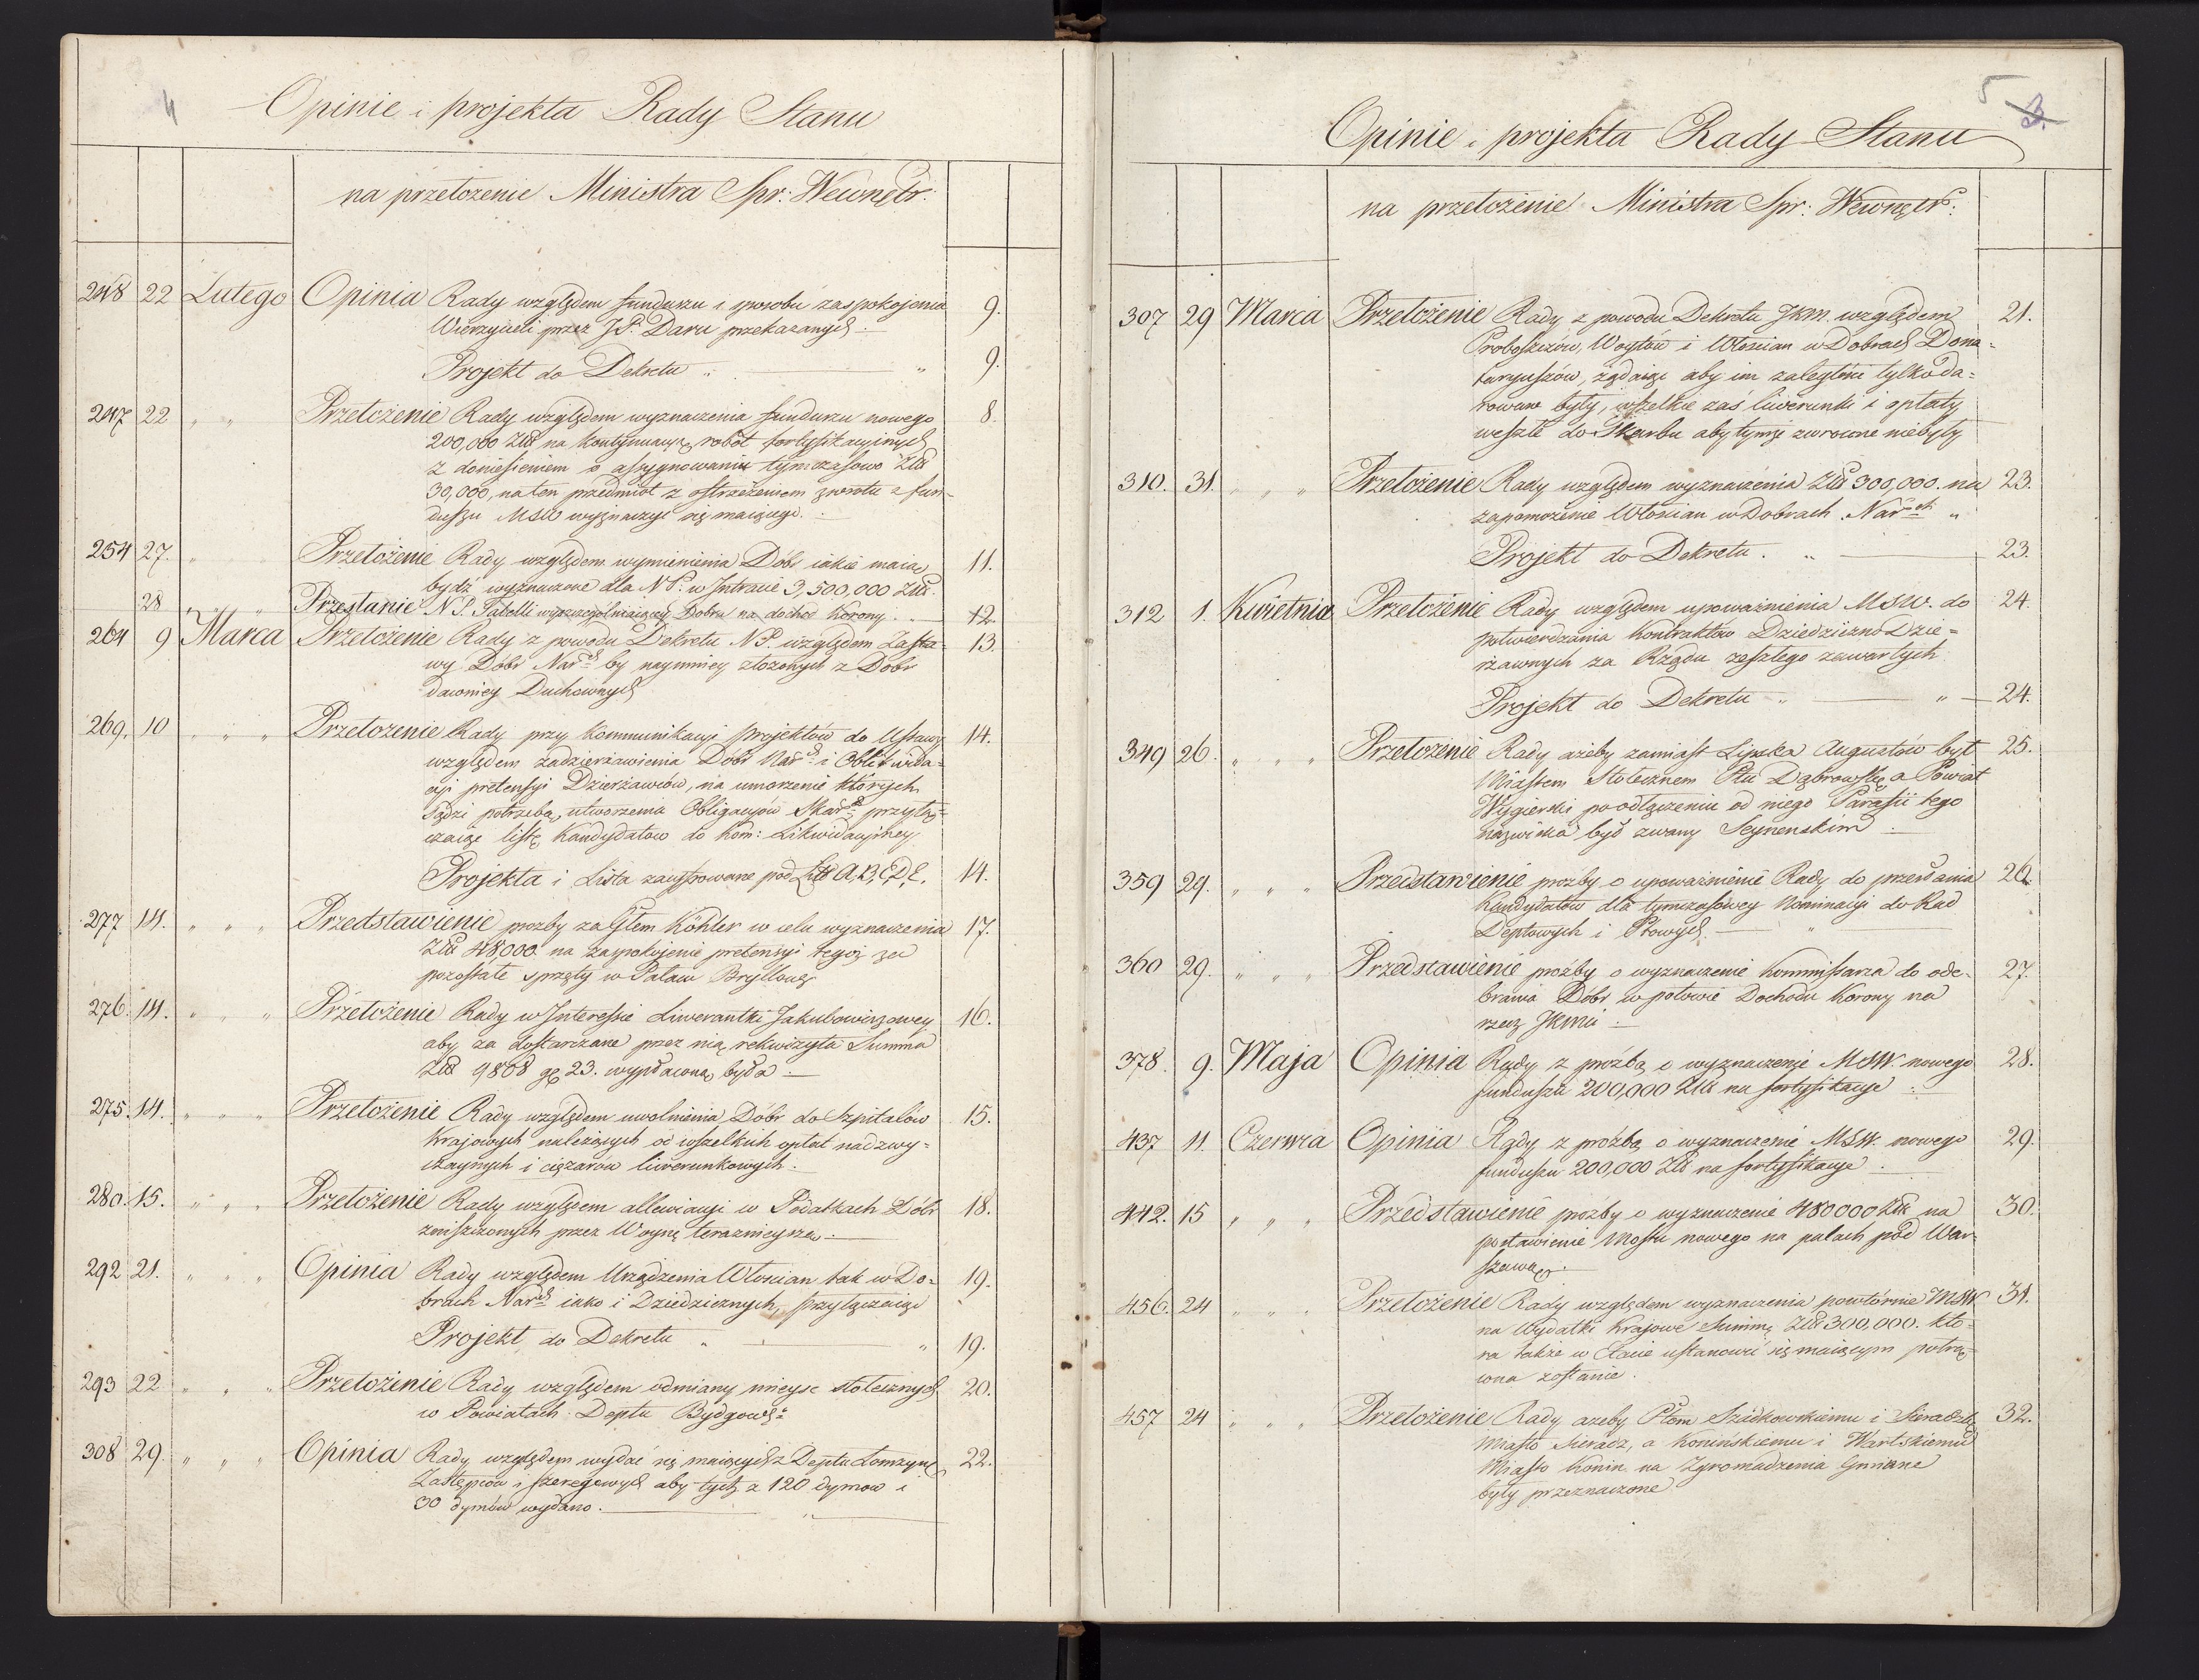 4
Opinie i projekta Rady Stanu
na przełożenie Ministra Spr: Wewnętr:
248 22 Lutego Opinia Rady względem funduszu i sposobu zaspokojenia 9.
Wierzycieli przez JP. Daru przekazanych .
Projekt do Dekretu „ „ 9.
247 22 „ „ Przełożenie Rady względem wyznaczenia funduszu nowego 8.
200,000 Złł na kontynuacyę robót fortyfikacyinych
z doniesieniem o assygnowaniu tymczasowo Złł
30,000, na ten przedmiot z ostrzeżeniem zwrotu z fun-
duszu MSW wyznaczyć się maiącego.
254 27. „ Przełożenie Rady względem wymienienia Dóbr iakie maią 11.
bydź wyznaczone dla NP. w Intracie 3,500,000 Złł.
28 „ „ „ Przesłanie N.P. Tabelli wyszczególniaiącey Dobra na dochód Korony. 12
264 9 Marca Przełożenie Rady z powodu Dekretu NP. względem Zasta- 13.
wy Dóbr Narch by naymniey złożonych z Dóbr
dawniey Duchownych
269. 10 „ „ „ Przełożenie Rady przy kommunikacyi projektów do Ustawy 14.
względem zadzierżawienia Dóbr Narch i Oblikwida-
cyi pretensyi Dzierżawców, na umorzenie których
sądzi potrzebą utworzenia Obligacyów Skarch przyłą-
czaiąc listę Kandydatów do Kom: Likwidacyiney
Projekta i Lista zamustrowane pod Litt A,B,C,D,E. 14.
277 14. „ „ „ Przedstawienie prozby za Głem Köhler w celu wyznaczenia 17.
Złł 48,000 na zaspokojenie pretensyi tegoż za
pozostałe sprzęty w Pałacu Bryllowy
276. 14. „ „ „ Przełożenie Rady w Interessie Liwerantki Jakubowiczowey 16.
aby za dostarczane przez nią rekwizyta Summa
Złł 9868 gr 23. wypłaconą była .
275. 14. „ „ „ Przełożenie Rady względem uwolnienia Dóbr do Szpitalów 15.
Krajowych należących od wszelkich opłat nadzwy-
czaynych i ciężarów liwerunkowych .
280. 15. „ „ „ Przełożenie Rady względem allewiacyi w Podatkach Dóbr 18.
zniszczonych przez Woynę teraznieyszą .
292 21. „ „ „ Opinia Rady względem Urządzenia Włoscian tak w Do- 19.
brach Narch iako i Dziedzicznych, przyłączaiąc
Projekt do Dekretu „ „ 19.
293 22 „ „ „ Przełożenie Rady względem odmiany mieysc stołecznych 20.
w Powiatach Deptu Bydgowsk:
308 29. „ „ „ Opinia Rady względem wydać się maiących z Deptu Łomżyn 22.
Zastępców i szeregowych aby tych z 120 dymow i
30 dymów wydano.
5 3.
Opinie i projekta Rady Stanu
na przełożenie Ministra Spr: Wewnętr:
307 29 Marca Przełożenie Rady z powodu Dekretu JKM. względem 21.
Proboszczów, Woytów i Włoscian w Dobrach Dona-
taryuszów, żądaiąc aby im zaległosci tylko da-
rowane były, wszelkie zas liwerunki i opłaty
weszłe do Skarbu aby tymże zwrócone niebyły
310. 31. „ „ „ Przełożenie Rady względem wyznaczenia Złł 300,000. na 23.
zapomożenie Włoscian w Dobrach Narch „
Projekt do Dekretu . „ 23.
312 1. Kwietnia Przełożenie Rady względem upoważnienia MSW. do 24.
potwierdzania Kontraktów Dziedziczno Dzie-
rżawnych za Rządu zeszłego zawartych
Projekt do Dekretu „ „ 24.
349 26. „ „ „ Przełożenie Rady ażeby zamiast Lipska Augustów był 25.
Miastem Stołecznem Ptu Dąbrowskę a Powiat
Wygierski po odłączeniu od niego Parafii tego
nazwiska był zwany Seynenskim
359 29. „ „ „ Przedstawienie prozby o upoważnienie Rady do przesłania 26.
Kandydatów dla tymczasowey Nominacyi do Rad
Deptowych i Ptowych. „
360 29. „ „ „ Przedstawienie proźby o wyznaczenie Kommissarza do ode- 27.
brania Dóbr w połowie Dochodu Korony na
rzecz JKMci
378. 9. Maja Opinia Rady z prozbą o wyznaczenie MSW nowego 28.
funduszu 200,000 Złł na fortyfikacye .
437 11. Czerwca Opinia Rady z proźbą o wyznaczenie MSW. nowego 29.
funduszu 200,000 Złł na fortyfikacye .
442. 15 „ „ „ Przedstawienie proźby o wyznaczenie 480000 Złł na 30.
postawienie Mostu nowego na palach pod War-
szawą.
456. 24 „ „ „ Przełożenie Rady względem wyznaczenia powtórnie MSW 31.
na Wydatki Krajowe Summę Złł 300,000. któ-
ra także w Etacie ustanowić się maiącym potrą-
cona zostanie.
457 24 „ „ „ Przełożenie Rady ażeby Ptom Szadkowskiemu i Sieradzk 32.
Miasto Sieradz, a Konińskiemu i Wartskiemu
Miasto Konin na Zgromadzenia Gminne
były przeznaczone